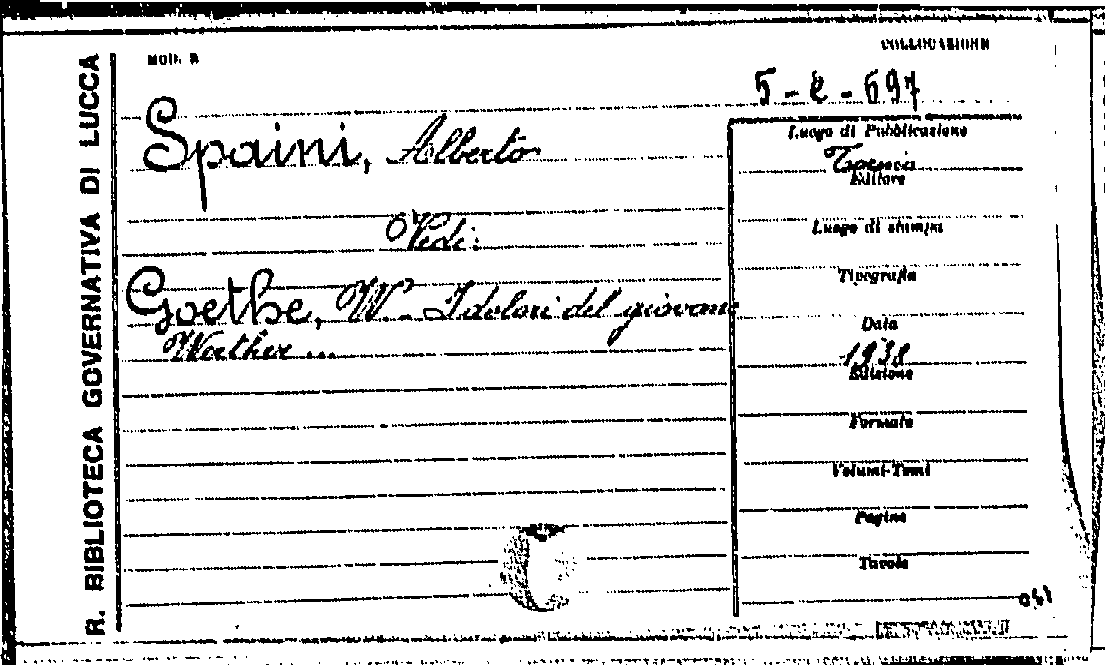 R. BIBLIOTECA GOVERNATIVA DI LUCCA
MOD. B
COLLOCAZIONE
5-e-697
Spaini, Alberto
Vedi:
Goethe, W - I dolori del giovane
Werther ...
Luogo di Pubblicazione
Torino
Editore
Luogo di stampa
Tipografia
Data
1938
Edizione
Formato
Volumi-Tomi
Pagine
Tavole
041